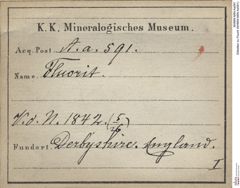 K. K. Mineralogisches Museum.
Acq. Post A. a. 591.
Name: Fluorit.
V. d. N. 1842. (5/26
Fundort: Derbyshire. England.
I